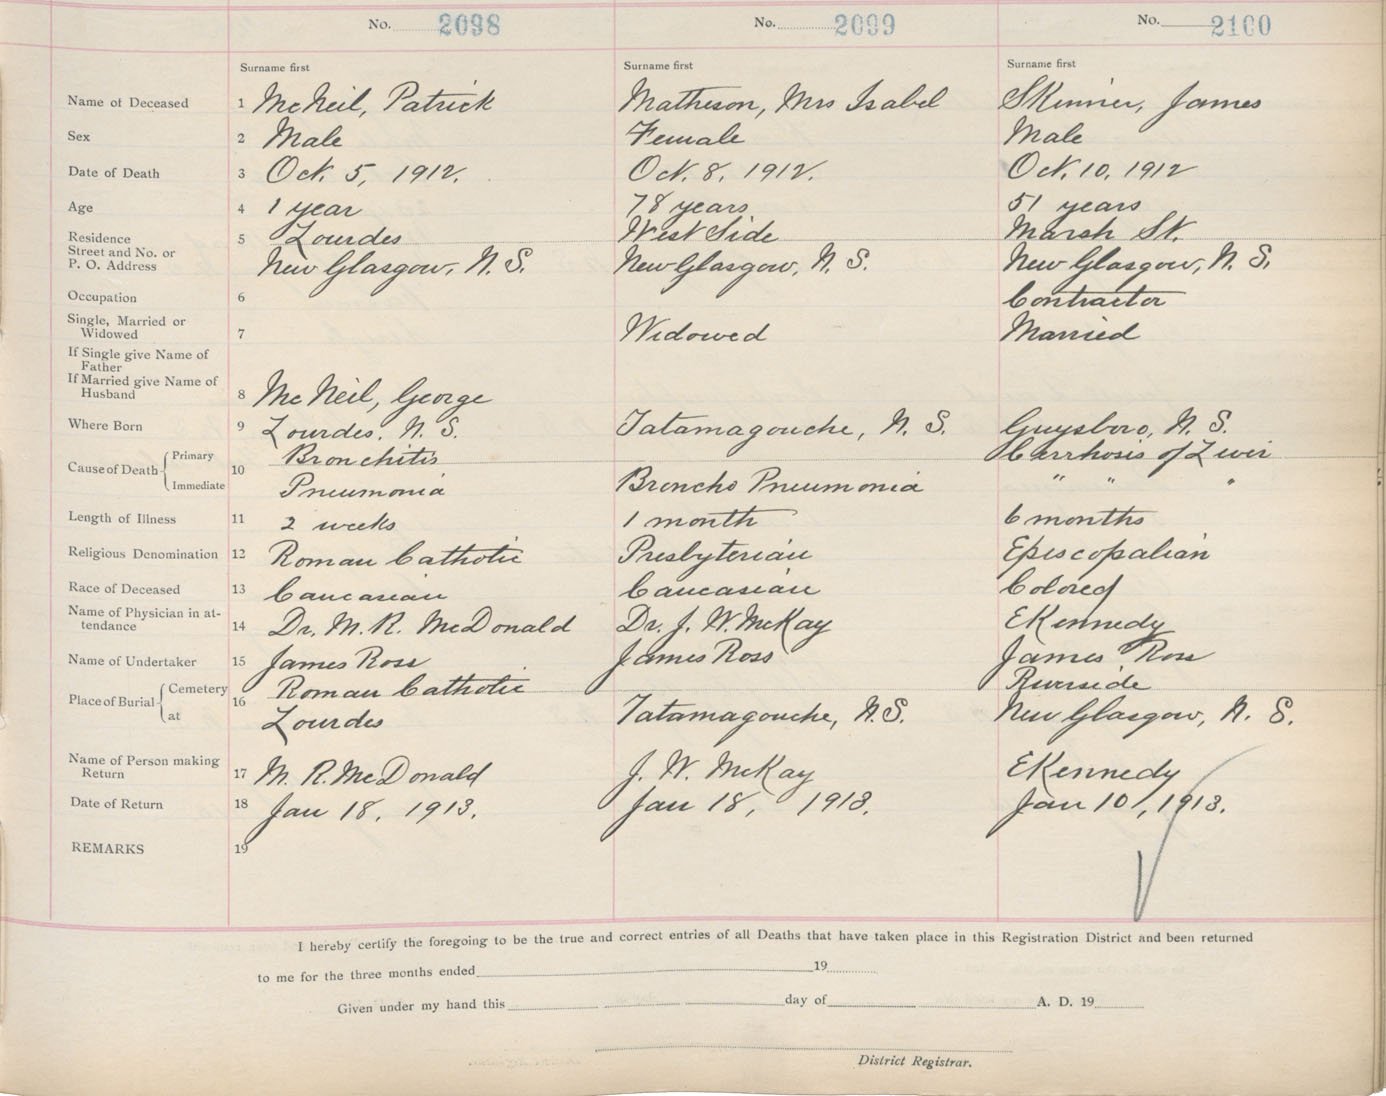 No. 2098 No. 2099 No. 2100
Surname first Surname first Surname first
Name of Deceased 1 McNeil, Patrick Matheson, Mrs Isabel Skinner, James
Sex 2 Male Female Male
Date of Death 3 Oct. 5, 1912. Oct. 8, 1912. Oct. 10, 1912
Age 4 1 year 78 years 51 years
Residence 5 Lourdes West Side Marsh St.
Street and No. or
P. O. Address New Glasgow, N. S. New Glasgow, N. S. New Glasgow, N. S.
Occupation 6 Contractor
Single, Married or
Widowed 7 Widowed Married
If Single give Name of
Father
If Married give Name of
Husband 8 McNeil, George
Where Born 9 Lourdes. N. S. Tatamagouche, N. S. Guysboro, N. S.
Cause of Death Primary 10 Bronchitis Cirrhosis of Liver
Immediate Pneumonia Broncho Pneumonia " " "
Length of Illness 11 2 weeks 1 month 6 months
Religious Denomination 12 Roman Catholic Presbyterian Episcopalian
Race of Deceased 13 Caucasian Caucasian Colored
Name of Physician in at-
tendance 14 Dr. M. R. McDonald Dr. J. W. McKay E Kennedy
Name of Undertaker 15 James Ross James Ross James Ross
Place of Burial Cemetery 16 Roman Catholic Riverside
at Lourdes Tatamagouche, N.S. New Glasgow, N. S.
Name of Person making
Return 17 M. R. McDonald J. W. McKay E Kennedy
Date of Return 18 Jan 18, 1913. Jan 18, 1913. Jan 10, 1913.
REMARKS 19
I hereby certify the foregoing to be the true and correct entries of all Deaths that have taken place in this Registration District and been returned
to me for the three months ended 19
Given under my hand this day of A. D. 19
District Registrar.